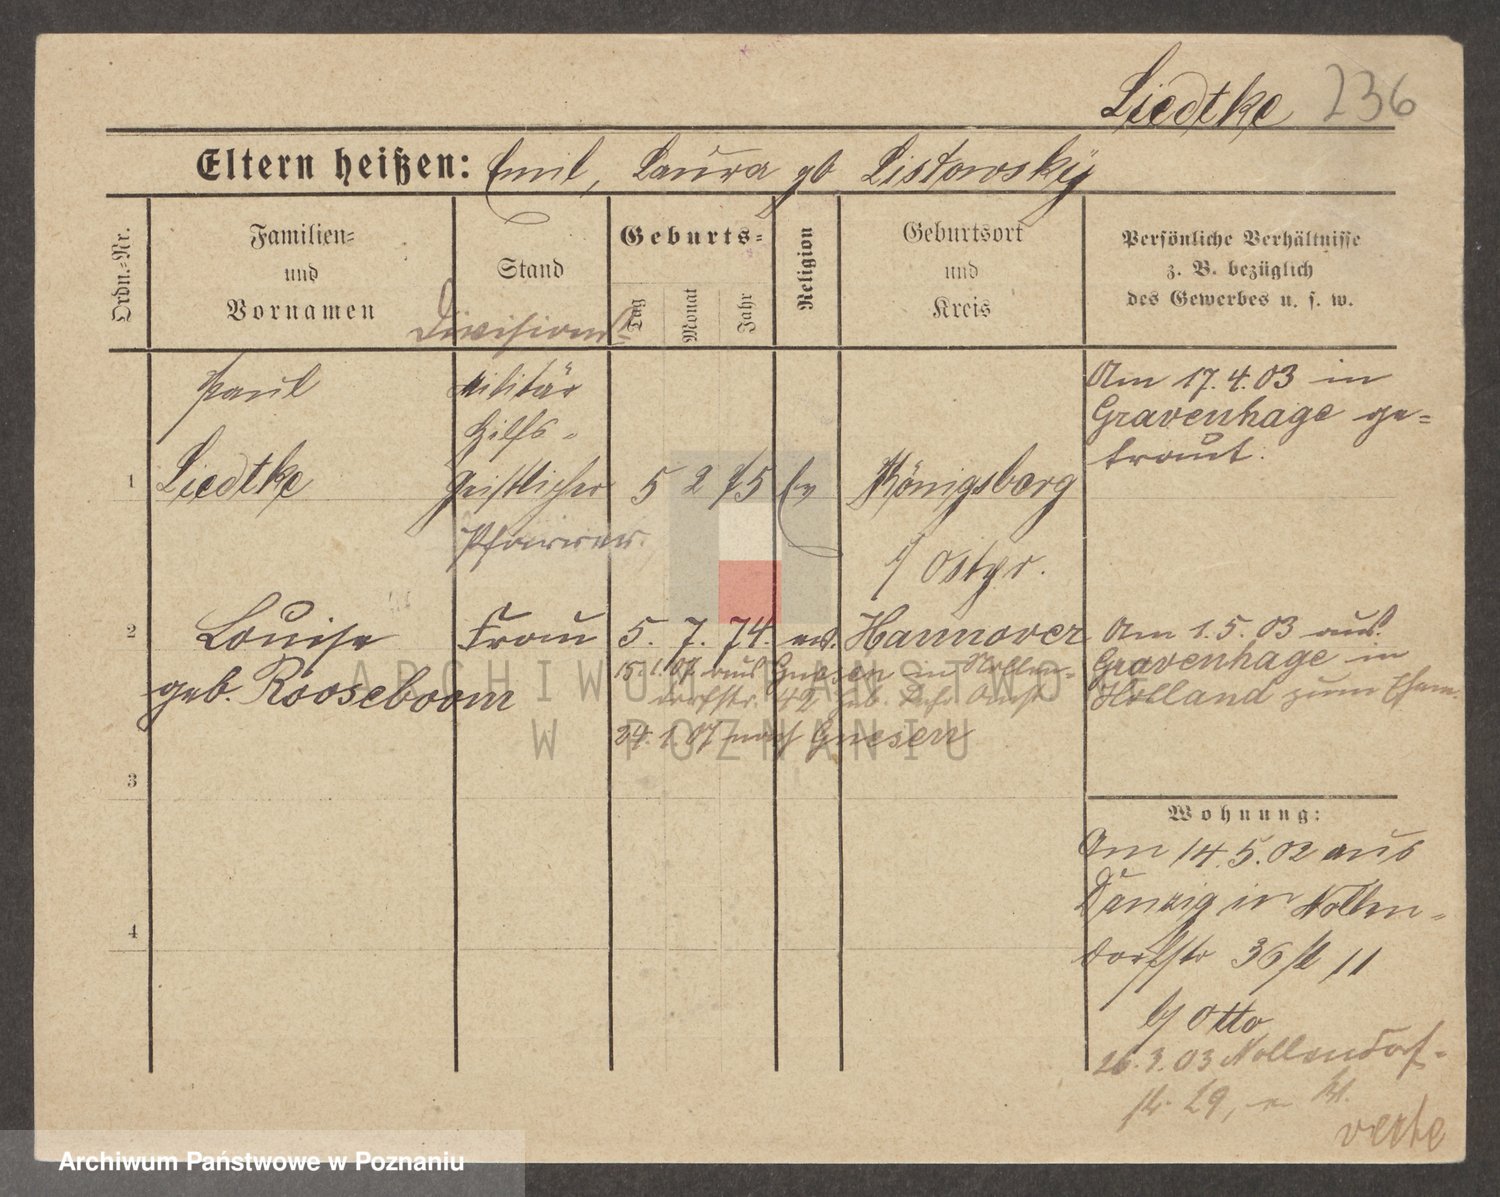 Liedtke 236
Eltern heißen: Emil, Laura gb Listowsky
Ordn.-Nr.
Familien-
und
Vornamen
Stand
Geburts-
Tag
Monat
Jahr
Religion
Geburtsort
und
Kreis
Persönliche Verhältnisse
z. B. bezüglich
des Gewerbes u. s. w.
Divisions
1
Paul
Liedtke
Militär
Hilfs-
geistlicher
Pfarrer
5 2 75 Ev
Königsberg
/ Ostpr.
Am 17.4.03 in
Gravenhage ge-
traut.
2
Louise
geb. Rooseboom
Frau
5. 7. 74. ev. Hannover
Am 1.5.03 aus
Gravenhage in
Holland zum Ehem.
15.1.07 aus Gnesen in Nollen-
dorfstr. 42
24.1.07 nach Gnesen
3
4
Wohnung:
Am 14.5.02 aus
Danzig in Nollen-
dorfstr 36 II
b/ Otto
26.3.03 Nollendorf-
str 29,
verte
ARCHIWUM PAŃSTWOWE
W POZNANIU
Archiwum Państwowe w Poznaniu